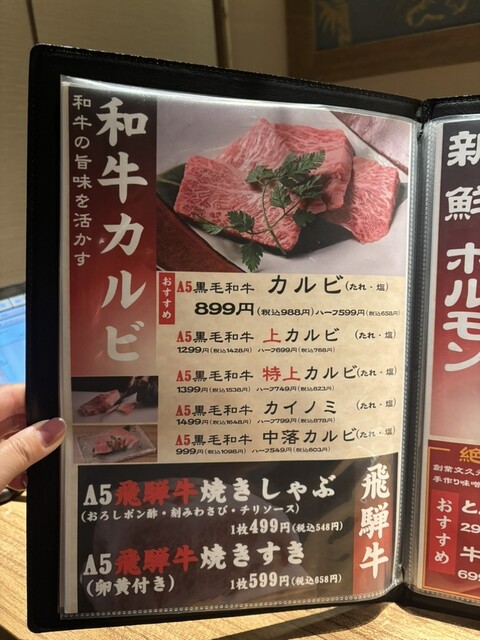 和牛カルビ
和牛の旨味を活かす
おすすめ
A5黒毛和牛 カルビ(たれ・塩)
899円(税込988円) ハーフ599円(税込658円)
A5黒毛和牛 上カルビ (たれ・塩)
1299円(税込1428円) ハーフ699円(税込768円)
A5黒毛和牛 特上カルビ(たれ・塩)
1399円(税込1538円) ハーフ749円(税込823円)
A5黒毛和牛 カイノミ (たれ・塩)
1499円(税込1648円) ハーフ799円(税込878円)
A5黒毛和牛 中落カルビ(たれ・塩)
999円(税込1098円) ハーフ549円(税込603円)
飛騨牛
A5飛騨牛焼きしゃぶ
(おろしポン酢・刻みわさび・チリソース)
1枚499円(税込548円)
A5飛騨牛焼きすき
(卵黄付き) 1枚599円(税込658円)
新鮮ホルモン
創業文久元
手作り味噌
おすすめ
と
29
牛
699